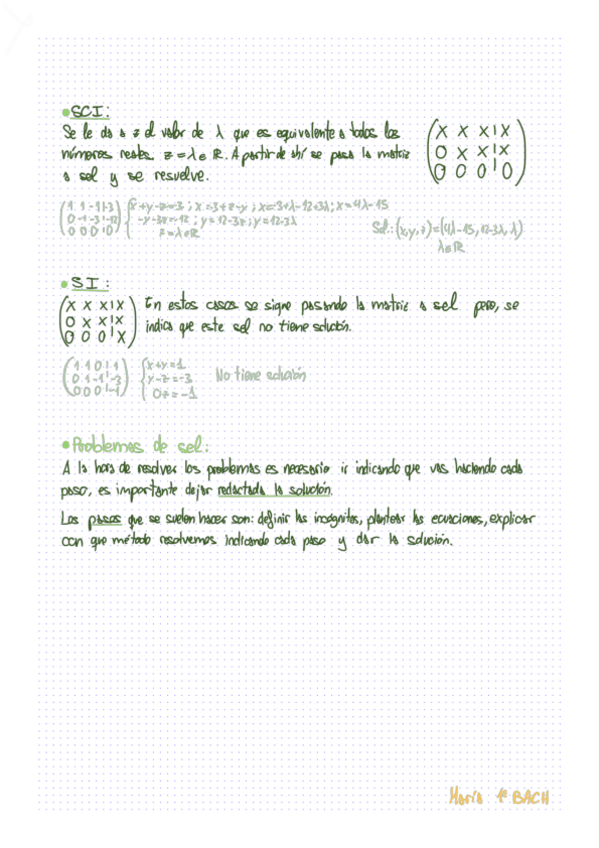 • SCI:
Se le da a z el valor de λ que es equivalente a todos los
números reales. z = λ ∈ ℝ. A partir de ahí se pasa la matriz
a sel y se resuelve.
( x x x | x
0 x x | x
0 0 0 | 0 )
( 1 1 -1 | -3
0 -1 -3 | -12
0 0 0 | 0 )
{ x+y-z=-3 ; x=-3+z-y ; x=-3+λ-12+3λ ; x=4λ-15
-y-3z=-12 ; y=12-3z ; y=12-3λ
z=λ∈ℝ
Sol.: (x,y,z)=(4λ-15, 12-3λ, λ)
λ∈ℝ
• SI:
( x x x | x
0 x x | x
0 0 0 | x )
En estos casos se sigue pasando la matriz a sel pero, se
indica que este sel no tiene solución.
( 1 1 0 | 1
0 1 -1 | -3
0 0 0 | -1 )
{ x+y=1
y-z=-3
0z=-1
No tiene solución
• Problemas de sel:
A la hora de resolver los problemas es necesario ir indicando que vas haciendo cada
paso, es importante dejar redactada la solución.
Los pasos que se suelen hacer son: definir las incógnitas, plantear las ecuaciones, explicar
con que método resolvemos indicando cada paso y dar la solución.
María 1º BACH